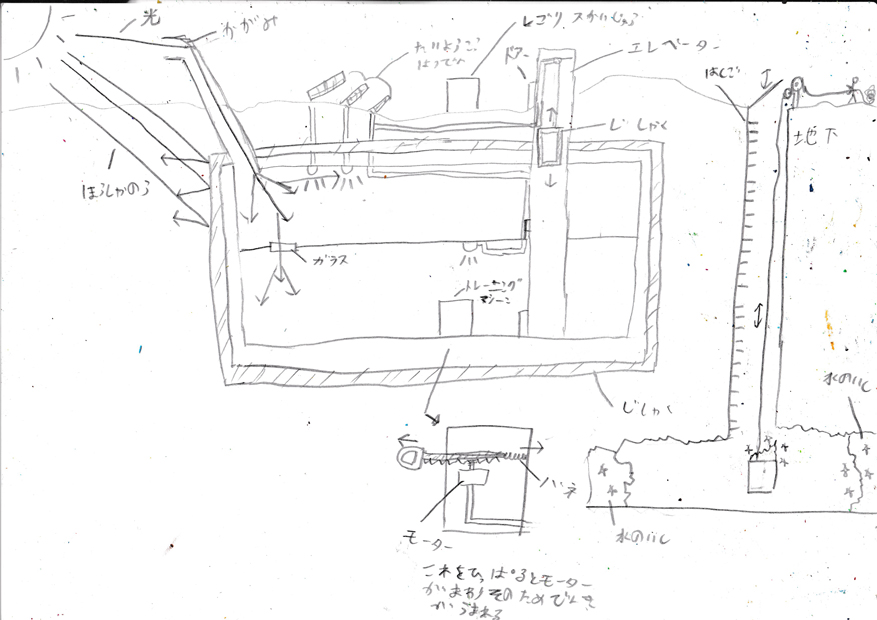 光
こかがみ
たいようこう
はつでん
レゴリスかいしゅう
ドアー
エレベーター
はしご
じしゃく
地下
ほうしゃのう
ガラス
トレーニング
マシーン
じしゃく
氷のいし
バネ
氷のいし
モーター
これをひっぱるとモーター
がまわりそのためでんき
がうまれる